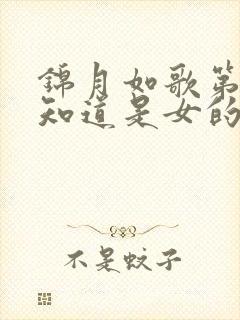 錦月如歌第
知道是女的
不是蚊子